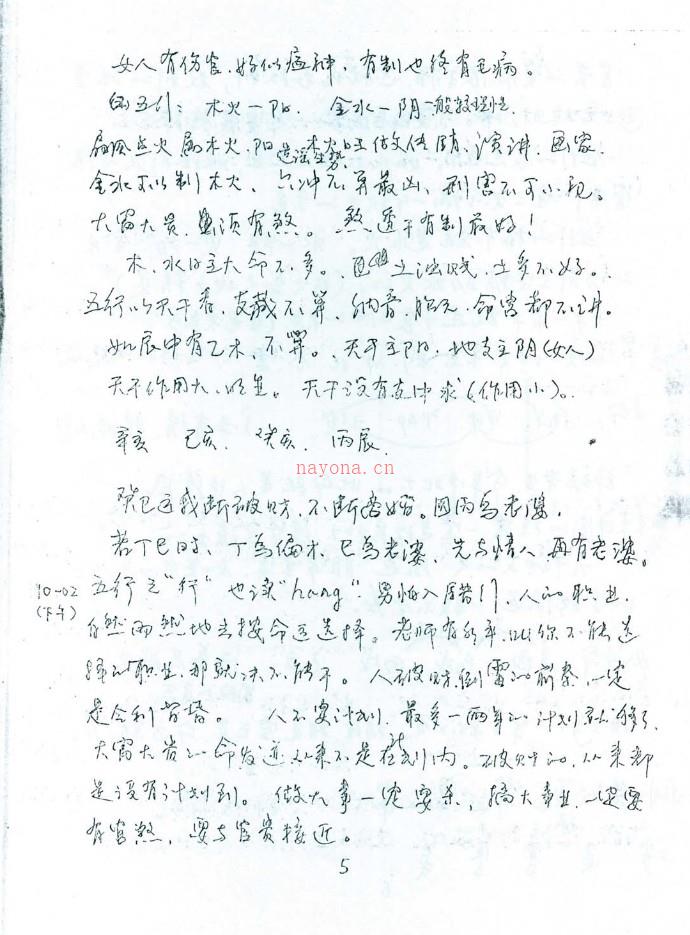 女人有伤官、好似瘟神，有制也终有毛病。
由五行：木火一阳、金水一阴 一般较理性
扇风点火属木火、阳 造谣生势 木火日主做传销、演讲、画家、
金水可以制木火、六冲不算最凶、刑害不可小视。
大富大贵、必须有煞。煞透干有制最好！
木、水日主大命不多。土浊贱、土多不好。
五行以天干看，支藏不算、纳音、胎元、命宫都不讲。
如辰中有乙木、不算。天干主阳、地支主阴(女人)
天干作用大、明显。天干没有支中求(作用小)。
辛亥 己亥 癸亥 丙辰
nayona.cn
癸巳运我断破财，不断婚姻。因丙为老婆，
若丁巳时、丁为偏才、巳为老婆、先与情人、再有老婆。
10-02 五行之"行"也读"hang" 男怕入错行、人的职业、
(下午) 自然而然地去按命运选择。老师有水平、叫你不能选
择的职业、那就决不能干。人破财倒霉的前奏、一定
是令利智昏。人不要计划、最多一两年的计划就够了
大富大贵的命发迹从来不是在计划内。破财的、从来都
是没有计划到。做大事一定要杀，搞大事业一定要
有官煞，要与官贵接近。
5